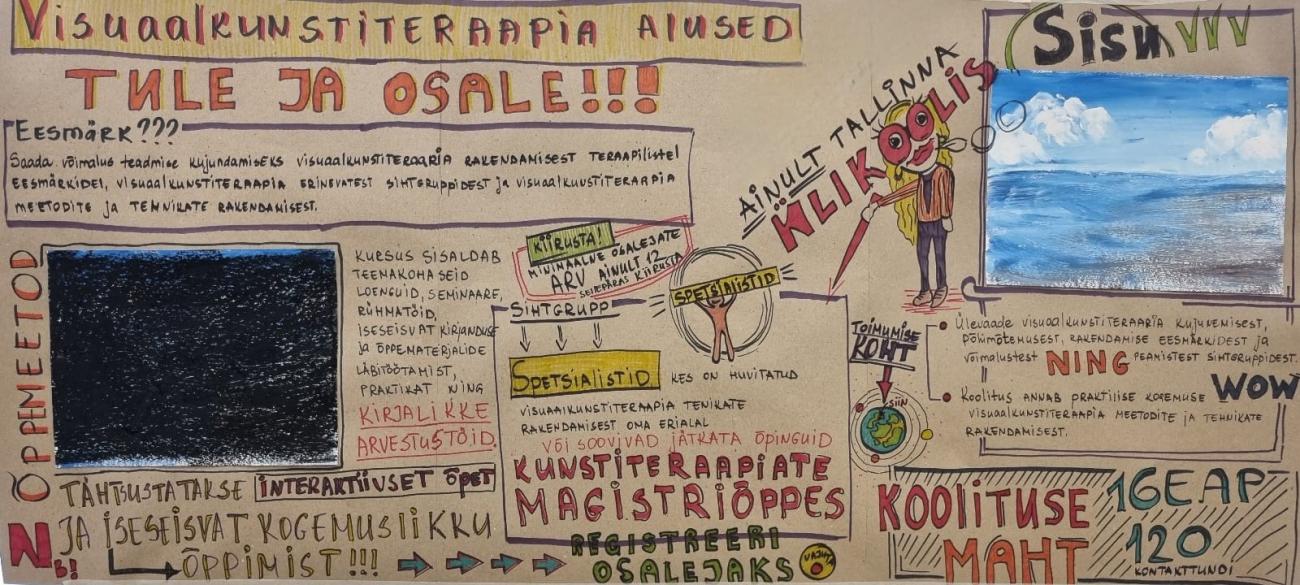 VisuaalKUNSTITERAAPIA AlUSED
TULE JA OSALE!!!
EESMÄRK???
Saada võimalus teadmise kujundamiseks visuaalkunstiteraaria rakendamisest teraapilistel
eesmärkidel, visuaalkunstiteraapia erinevatest sihtgruppidest ja visuaalkunstiteraapia
meetodite ja tehnikate rakendamisest.
ÕPPEMEETOD
KURSUS SISALDAB
TEEMAKOHASEID
LOENGUID, SEMINAARE,
RÜHMATÖID,
ISESEISVAT KIRJANDUSE
JA ÕPPEMATERJALIDE
LÄBITÖÖTAMIST,
PRAKTIKAT NING
KIRJALIKKE
ARVESTUSTÖID.
TÄHTSUSTATAKSE INTERAKTIIVSET ÕPET
NB!
JA ISESEISVAT KOGEMUSLIKKU
ÕPPIMIST!!!
KIIRUSTA!
MINIMAALNE OSALEJATE
ARV AINULT 12
SELLEPÄRAS KIIRUSTA
SIHTGRUPP
SPETSIALISTID
SPETSIALISTID KES ON HUVITATUD
VISUAALKUNSTITERAAPIA TENIKATE
RAKENDAMISEST OMA ERIALAL
VÕI SOOVIVAD JÄTKATA ÕPINGUID
KUNSTITERAAPIATE
MAGISTRIÕPPES
REGISTREERI
OSALEJAKS
VAJUTA
AINULT TALLINNA
ÜLIKOOLIS
TOIMUMISE
KOHT
SIIN
Sisu
Ülevaade visuaalkunstiteraaria kujunemisest,
põhimõtemusest, rakendamise eesmärkidest ja
võimalustest NING peamistest sihtgruppidest.
WOW
Koolitus annab praktilise kogemuse
visuaalkunstiteraapia meetodite ja tehnikate
rakendamisest.
KOOLITUSE
MAHT
16EAP
120
KONTAKTTUNDI